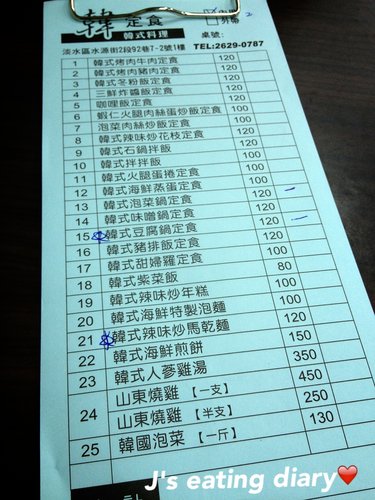 韓 定食
韓式料理
內用
外帶 2
桌號:
淡水區水源街2段92巷7-2號1樓 TEL:2629-0787
1 韓式烤肉牛肉定食 120
2 韓式烤肉豬肉定食 120
3 韓式冬粉飯定食 100
4 三鮮炸醬飯定食 120
5 咖哩飯定食 100
6 蝦仁火腿肉絲蛋炒飯定食 100
7 泡菜肉絲炒飯定食 100
8 韓式辣味炒花枝定食 120
9 韓式石鍋拌飯 120
10 韓式拌拌飯 100
11 韓式火腿蛋捲定食 100
12 韓式海鮮蒸蛋定食 120
13 韓式泡菜鍋定食 120
14 韓式味噌鍋定食 120
15 韓式豆腐鍋定食 120
16 韓式豬排飯定食 100
17 韓式甜婦羅定食 100
18 韓式紫菜飯 80
19 韓式辣味炒年糕 100
20 韓式海鮮特製泡麵 100
21 韓式辣味炒馬乾麵 120
22 韓式海鮮煎餅 150
23 韓式人蔘雞湯 350
24 山東燒雞【一支】 450
山東燒雞【半支】 250
25 韓國泡菜【一斤】 130
J's eating diary